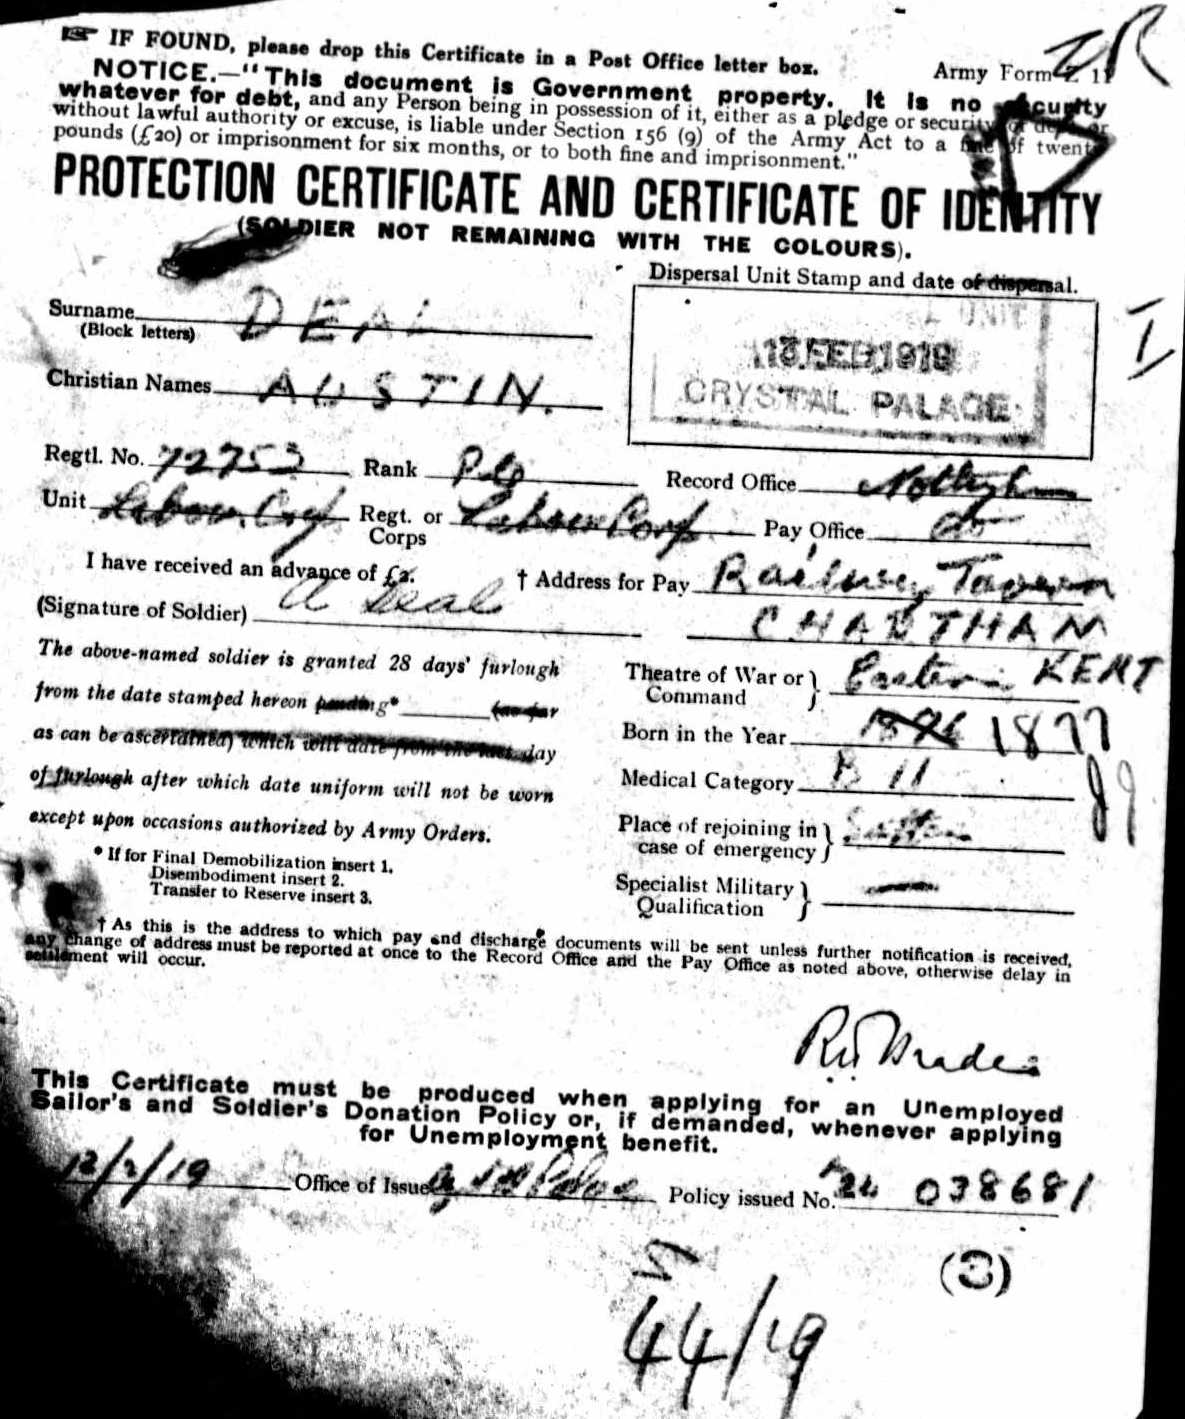 ☞ IF FOUND, please drop this Certificate in a Post Office letter box.
Army Form Z. 11
NOTICE.—"This document is Government property. It is no security
whatever for debt, and any Person being in possession of it, either as a pledge or security for debt or
without lawful authority or excuse, is liable under Section 156 (9) of the Army Act to a fine of twenty
pounds (£20) or imprisonment for six months, or to both fine and imprisonment."
PROTECTION CERTIFICATE AND CERTIFICATE OF IDENTITY
(SOLDIER NOT REMAINING WITH THE COLOURS).
Dispersal Unit Stamp and date of dispersal.
L UNIT
13 FEB 1919
CRYSTAL PALACE
I
Surname DEAL
(Block letters)
Christian Names AUSTIN.
Regtl. No. 72753 Rank Pte Record Office Nottingham
Unit Labour Corps Regt. or Corps Labour Corps Pay Office do
I have received an advance of £2. † Address for Pay Railway Tavern
(Signature of Soldier) A Deal CHARTHAM
KENT
The above-named soldier is granted 28 days' furlough
from the date stamped hereon pending* (as far
as can be ascertained) which will date from the last day
of furlough after which date uniform will not be worn
except upon occasions authorized by Army Orders.
* If for Final Demobilization insert 1.
Disembodiment insert 2.
Transfer to Reserve insert 3.
Theatre of War or Command } Eastern
Born in the Year 1877
Medical Category B 11
Place of rejoining in case of emergency }
Specialist Military Qualification } —
† As this is the address to which pay and discharge documents will be sent unless further notification is received,
any change of address must be reported at once to the Record Office and the Pay Office as noted above, otherwise delay in
settlement will occur.
This Certificate must be produced when applying for an Unemployed
Sailor's and Soldier's Donation Policy or, if demanded, whenever applying
for Unemployment benefit.
12/2/19 Office of Issue Policy issued No. 038681
(3)
44/19